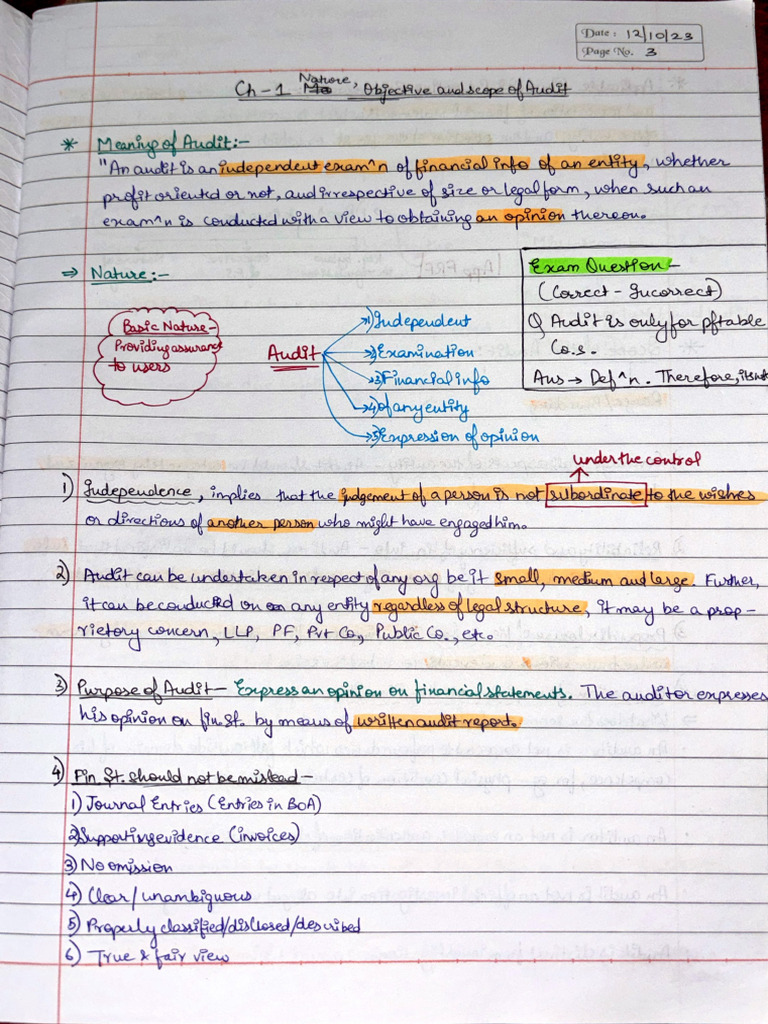 Date: 12/10/23
Page No. 3
Ch-1 Nature, Objective and scope of Audit
* Meaning of Audit:-
"An audit is an independent exam^n of financial info of an entity, whether
profit oriented or not, and irrespective of size or legal form, when such an
exam^n is conducted with a view to obtaining an opinion thereon.
⇒ Nature:-
Basic Nature-
Providing assurance
to users
Audit
1) Independent
2) Examination
3) Financial info
4) Of any entity
5) Expression of opinion
Exam Question-
(Correct-Incorrect)
Q Audit is only for pftable
Co.s.
Ans → Def^n. Therefore, its
under the control
1) Independence, implies that the judgement of a person is not subordinate to the wishes
or directions of another person who might have engaged him.
2) Audit can be undertaken in respect of any org be it small, medium and large. Further,
it can be conducted on any entity regardless of legal structure, it may be a prop-
rietory concern, LLP, PF, Pvt Co, Public Co., etc.
3) Purpose of Audit- Express an opinion on financial statements. The auditor expresses
his opinion on fin. st. by means of written audit report.
4) Fin. St. should not be mislead-
1) Journal Entries (Entries in BoA)
2) Supporting evidence (invoices)
3) No omission
4) Clear/unambiguous
5) Properly classified/disclosed/described
6) True & fair view